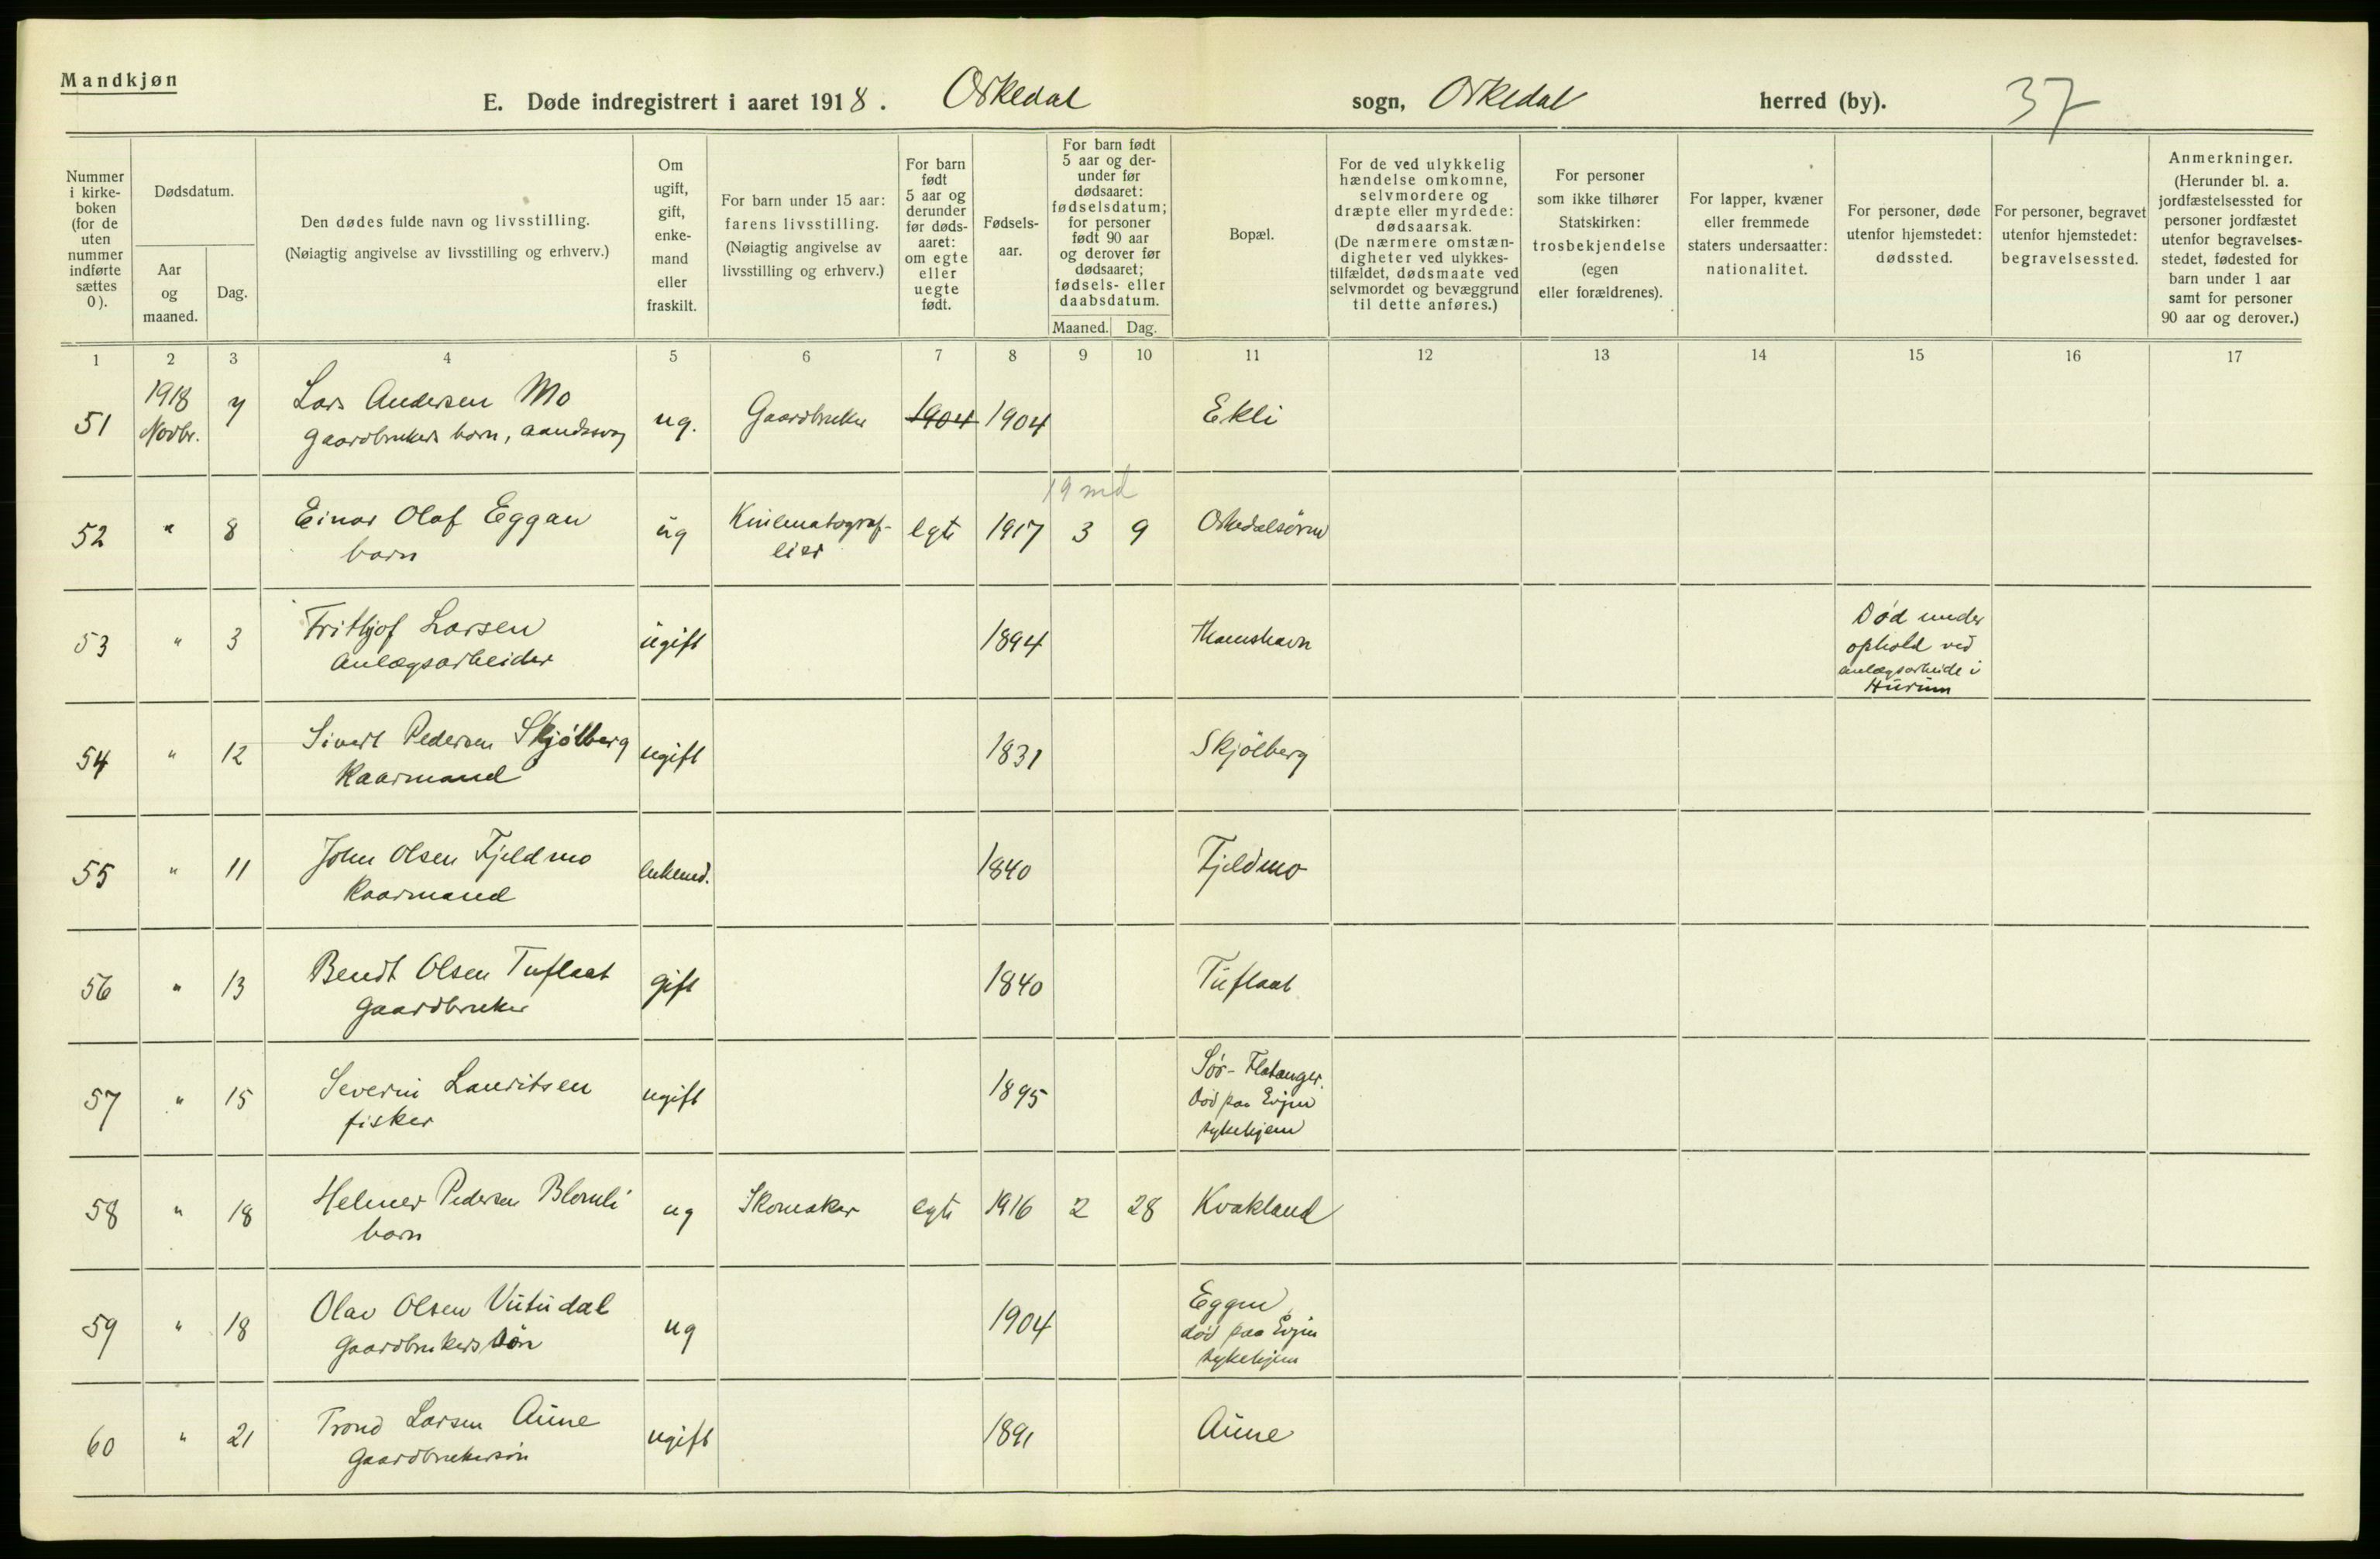 Mandkjøn
E. Døde indregistrert i aaret 1918. Orkedal sogn, Orkedal herred (by). 37
Nummer i kirke-boken (for de uten nummer indførte sættes 0).
Dødsdatum.
Aar og maaned.
Dag.
Den dødes fulde navn og livsstilling.
(Nøiagtig angivelse av livsstilling og erhverv.)
Om ugift, gift, enke-mand eller fraskilt.
For barn under 15 aar: farens livsstilling.
(Nøiagtig angivelse av livsstilling og erhverv.)
For barn født 5 aar og derunder før døds-aaret: om egte eller uegte født.
Fødsels-aar.
For barn født 5 aar og der-under før dødsaaret: fødselsdatum; for personer født 90 aar og derover før dødsaaret; fødsels- eller daabsdatum.
Maaned. Dag.
Bopæl.
For de ved ulykkelig hændelse omkomne, selvmordere og dræpte eller myrdede: dødsaarsak.
(De nærmere omstæn-digheter ved ulykkes-tilfældet, dødsmaate ved selvmordet og bevæggrund til dette anføres.)
For personer som ikke tilhører Statskirken: trosbekjendelse (egen eller forældrenes).
For lapper, kvæner eller fremmede staters undersaatter: nationalitet.
For personer, døde utenfor hjemstedet: dødssted.
For personer, begravet utenfor hjemstedet: begravelsessted.
Anmerkninger.
(Herunder bl. a. jordfæstelsessted for personer jordfæstet utenfor begravelses-stedet, fødested for barn under 1 aar samt for personer 90 aar og derover.)
1 2 3 4 5 6 7 8 9 10 11 12 13 14 15 16 17
51 1918 Novbr. 7 Lars Andersen Mo ug. Gaardbruker 1904 1904 Ekli
Gaardbrukers barn, aandssvag
19 md
52 " 8 Einar Olaf Eggan ug Kinematograf- egte 1917 3 9 Orkedalsøren
barn eier
53 " 3 Frithjof Larsen ugift 1894 Thamshavn Død under
Anlægsarbeider ophold ved
anlægsarbeide i
Hurum
54 " 12 Sivert Pedersen Skjølberg ugift 1831 Skjølberg
Kaarmand
55 " 11 John Olsen Fjeldmo enkemd. 1840 Fjeldmo
Kaarmand
56 " 13 Bendt Olsen Tuflaat gift 1840 Tuflaat
Gaardbruker
57 " 15 Severin Lauritsen ugift 1895 Sør-Flatanger.
fisker Død paa Evjen
sykehjem
58 " 18 Helmer Pedersen Blomli ug Skomaker egte 1916 2 28 Kvakland
barn
59 " 18 Olav Olsen Vutudal ug 1904 Eggen
Gaardbrukers søn død paa Evjen
sykehjem
60 " 21 Trond Larsen Aune ugift 1891 Aune
Gaardbrukersøn